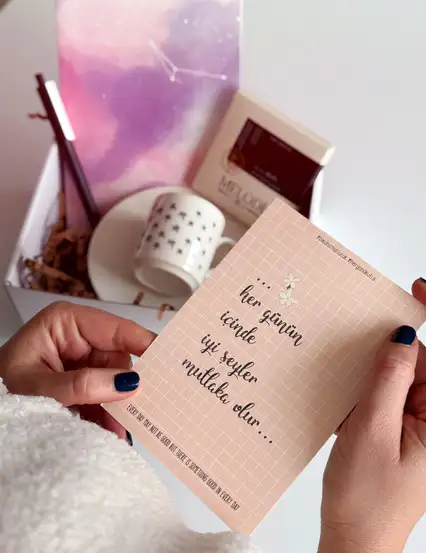 ...
her günün
içinde
iyi şeyler
mutlaka olur...
EVERY DAY MAY NOT BE GOOD BUT THERE IS SOMETHING GOOD IN EVERY DAY
MELODI